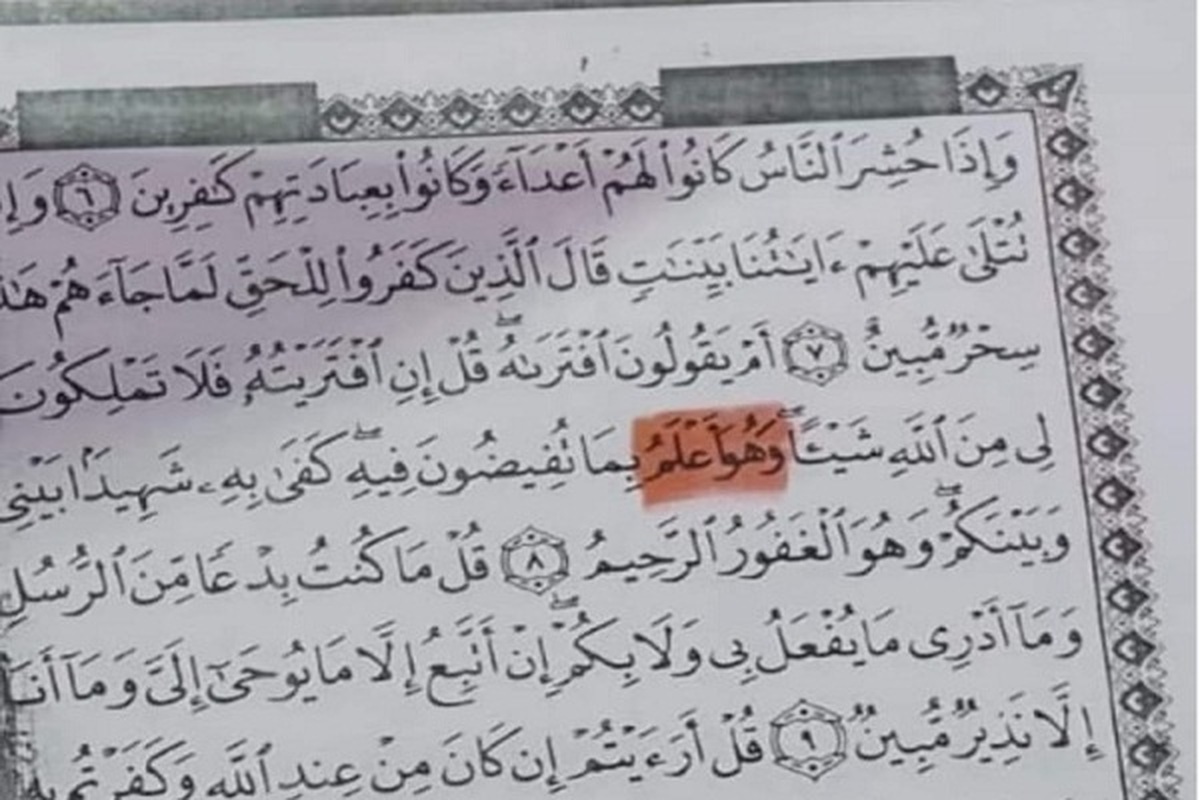 وَإِذَا حُشِرَ ٱلنَّاسُ كَانُوا۟ لَهُمْ أَعْدَآءً وَكَانُوا۟ بِعِبَادَتِهِمْ كَـٰفِرِينَ ٦
تُتْلَىٰ عَلَيْهِمْ ءَايَـٰتُنَا بَيِّنَـٰتٍ قَالَ ٱلَّذِينَ كَفَرُوا۟ لِلْحَقِّ لَمَّا جَآءَهُمْ
سِحْرٌ مُّبِينٌ ٧ أَمْ يَقُولُونَ ٱفْتَرَىٰهُ ۖ قُلْ إِنِ ٱفْتَرَيْتُهُۥ فَلَا تَمْلِكُونَ
لِى مِنَ ٱللَّهِ شَيْـًٔا ۖ وَهُوَ أَعْلَمُ بِمَا تُفِيضُونَ فِيهِ ۖ كَفَىٰ بِهِۦ شَهِيدًۢا بَيْنِى
وَبَيْنَكُمْ ۖ وَهُوَ ٱلْغَفُورُ ٱلرَّحِيمُ ٨ قُلْ مَا كُنتُ بِدْعًا مِّنَ ٱلرُّسُلِ
وَمَآ أَدْرِى مَا يُفْعَلُ بِى وَلَا بِكُمْ ۖ إِنْ أَتَّبِعُ إِلَّا مَا يُوحَىٰٓ إِلَىَّ وَمَآ أَنَا۠
إِلَّا نَذِيرٌ مُّبِينٌ ٩ قُلْ أَرَءَيْتُمْ إِن كَانَ مِنْ عِندِ ٱللَّهِ وَكَفَرْتُم بِهِ